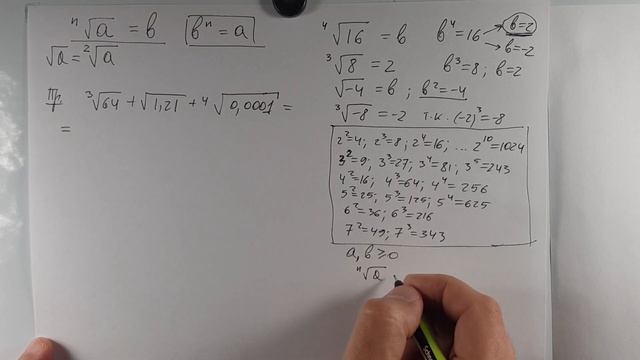 ⁿ√a = b   bⁿ = a
√a = ²√a
Пр ³√64 + √1,21 + ⁴√0,0001 =
=
⁴√16 = b   b⁴ = 16 → b = 2
→ b = -2
³√8 = 2   b³ = 8; b = 2
√-4 = b; b² = -4
³√-8 = -2   т.к. (-2)³ = -8
2² = 4; 2³ = 8; 2⁴ = 16; ... 2¹⁰ = 1024
3² = 9; 3³ = 27; 3⁴ = 81; 3⁵ = 243
4² = 16; 4³ = 64; 4⁴ = 256
5² = 25; 5³ = 125; 5⁴ = 625
6² = 36; 6³ = 216
7² = 49; 7³ = 343
a, b ≥ 0
ⁿ√a